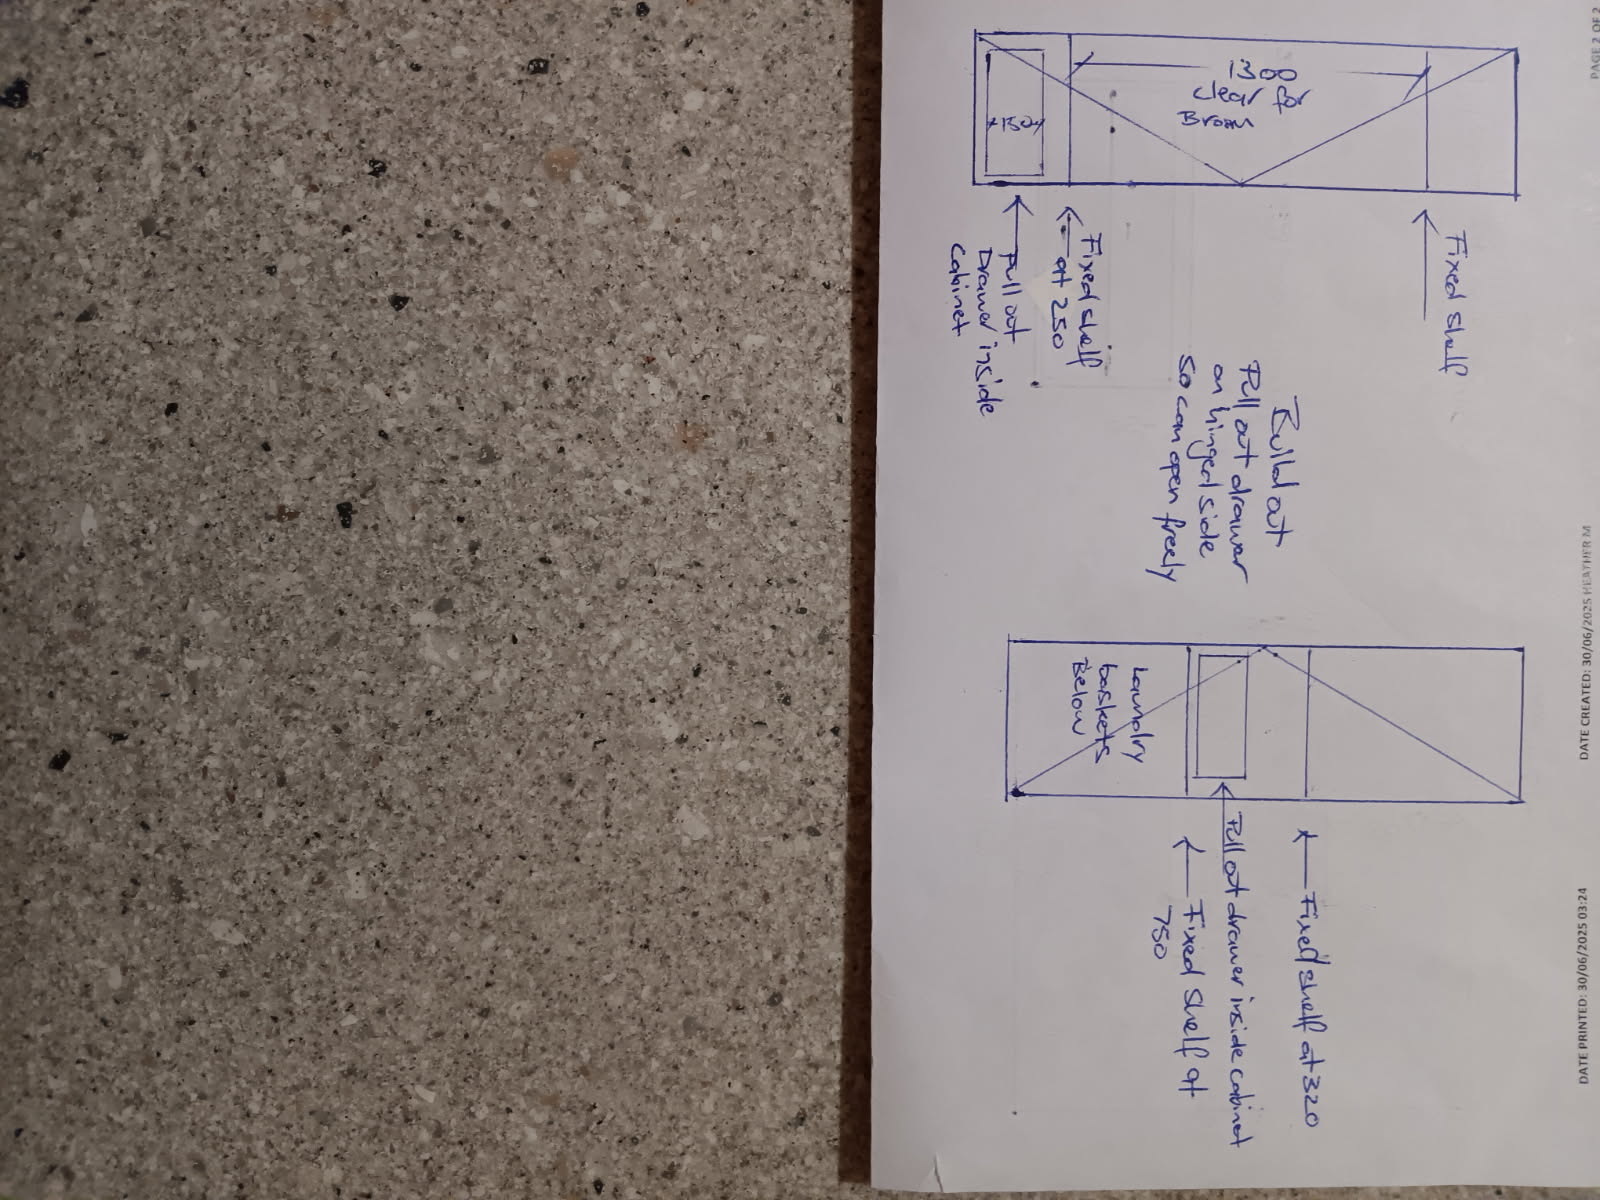 PAGE 2 OF 2
1300
clear for
Broom
150
Fixed shelf
Fixed shelf
at 250
Pull out
Drawer inside
Cabinet
Build out
Pull out drawer
on hinged side
so can open freely
Laundry
baskets
Below
Fixed shelf at 320
Pull out drawer inside cabinet
Fixed shelf at
750
DATE CREATED: 30/06/2025 HEATHER M
DATE PRINTED: 30/06/2025 03:24